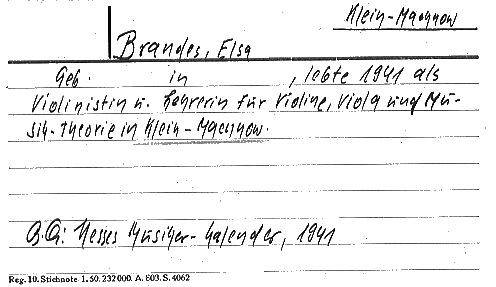 Klein-Machnow
Brandes, Elsa
Geb. in , lebte 1941 als
Violinistin u. Lehrerin für Violine, Viola und Mu-
sik-Theorie in Klein-Machnow.
B.Q: Hesses Musiker-Kalender, 1941
Reg. 10. Stichnote 1. 50. 232000. A. 803. S. 4062